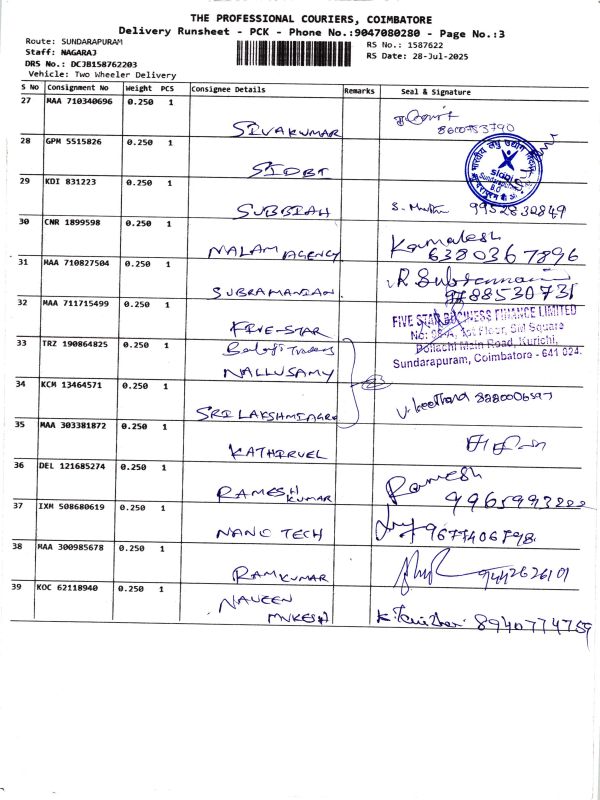 THE PROFESSIONAL COURIERS, COIMBATORE
Delivery Runsheet - PCK - Phone No.:9047080280 - Page No.:3
Route: SUNDARAPURAM
Staff: NAGARAJ
DRS No.: DCJB158762203
Vehicle: Two Wheeler Delivery
RS No.: 1587622
RS Date: 28-Jul-2025
S No Consignment No Weight PCS Consignee Details Remarks Seal & Signature
27 MAA 710340696 0.250 1 SIVAKUMAR 8600753790
28 GPM 5515826 0.250 1 SIDBI
sidbi
29 KDI 831223 0.250 1 SUBBIAH 9952830849
30 CNR 1899598 0.250 1 MALAM AGENCY Kamalesh
6380367896
31 MAA 710827504 0.250 1 SUBRAMANIAN R. Subramani
9788530731
32 MAA 711715499 0.250 1 FIVE-STAR
FIVE STAR BUSINESS FINANCE LIMITED
1st Floor, SM Square
Pollachi Main Road, Kurichi,
Sundarapuram, Coimbatore - 641 024.
33 TRZ 190864825 0.250 1 Balaji Traders
NALLUSAMY
34 KCM 13464571 0.250 1 SRI LAKSHMI AGRO
35 MAA 303381872 0.250 1 KATHIRVEL
36 DEL 121685274 0.250 1 RAMESH KUMAR Ramesh
9965993222
37 IXM 508680619 0.250 1 NANO TECH 9677406798
38 MAA 300985678 0.250 1 RAMKUMAR 9442626101
39 KOC 62118940 0.250 1 NAVEEN
MUKESH 8940774759